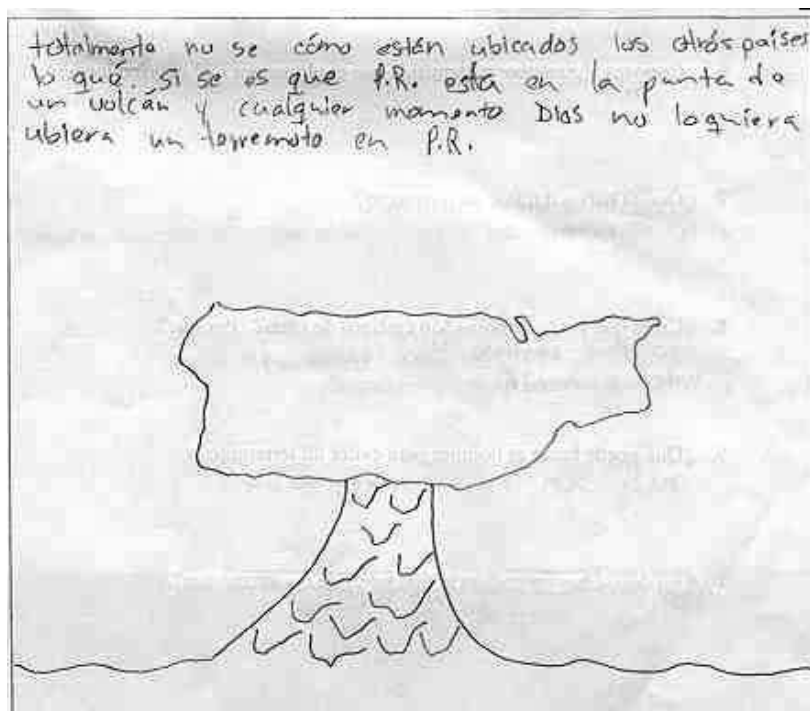 totalmente no se cómo están ubicados los otrós países
lo qué si se es que P.R. esta en la punta de
un volcán y cualquier momento Dios no loquiera
ubiera un terremoto en P.R.